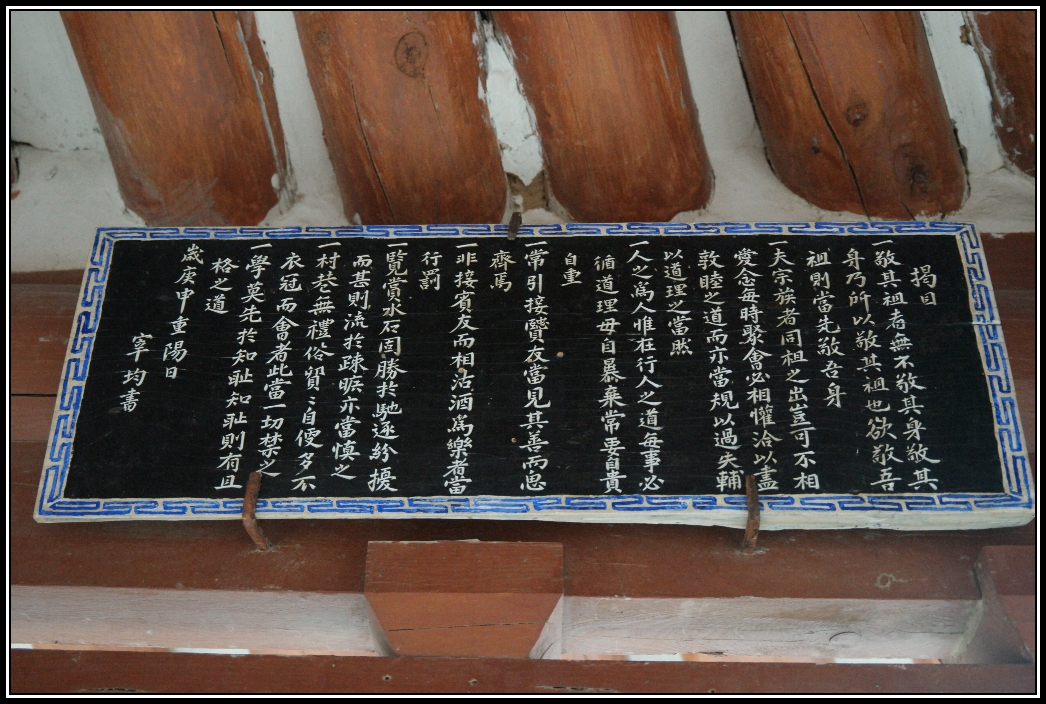 揭目
一敬其祖者無不敬其身敬其
身乃所以敬其祖也欲敬吾
祖則當先敬吾身
一夫宗族者同祖之出豈可不相
愛念每時聚會必相懽洽以盡
敦睦之道而亦當規以過失輔
以道理之當然
一人之爲人惟在行人之道每事必
循道理毋自暴棄常要自貴
自重
一常引接賢友當見其善而思
齊焉
一非接賓友而相沽酒爲樂者當
行罰
一覽賞水石固勝於馳逐紛擾
而甚則流於疎曠亦當慎之
一村巷無禮俗習〻自便多不
衣冠而會者此當一切禁之
一學莫先於知恥知恥則有且
格之道
歲庚申重陽日
宰均書